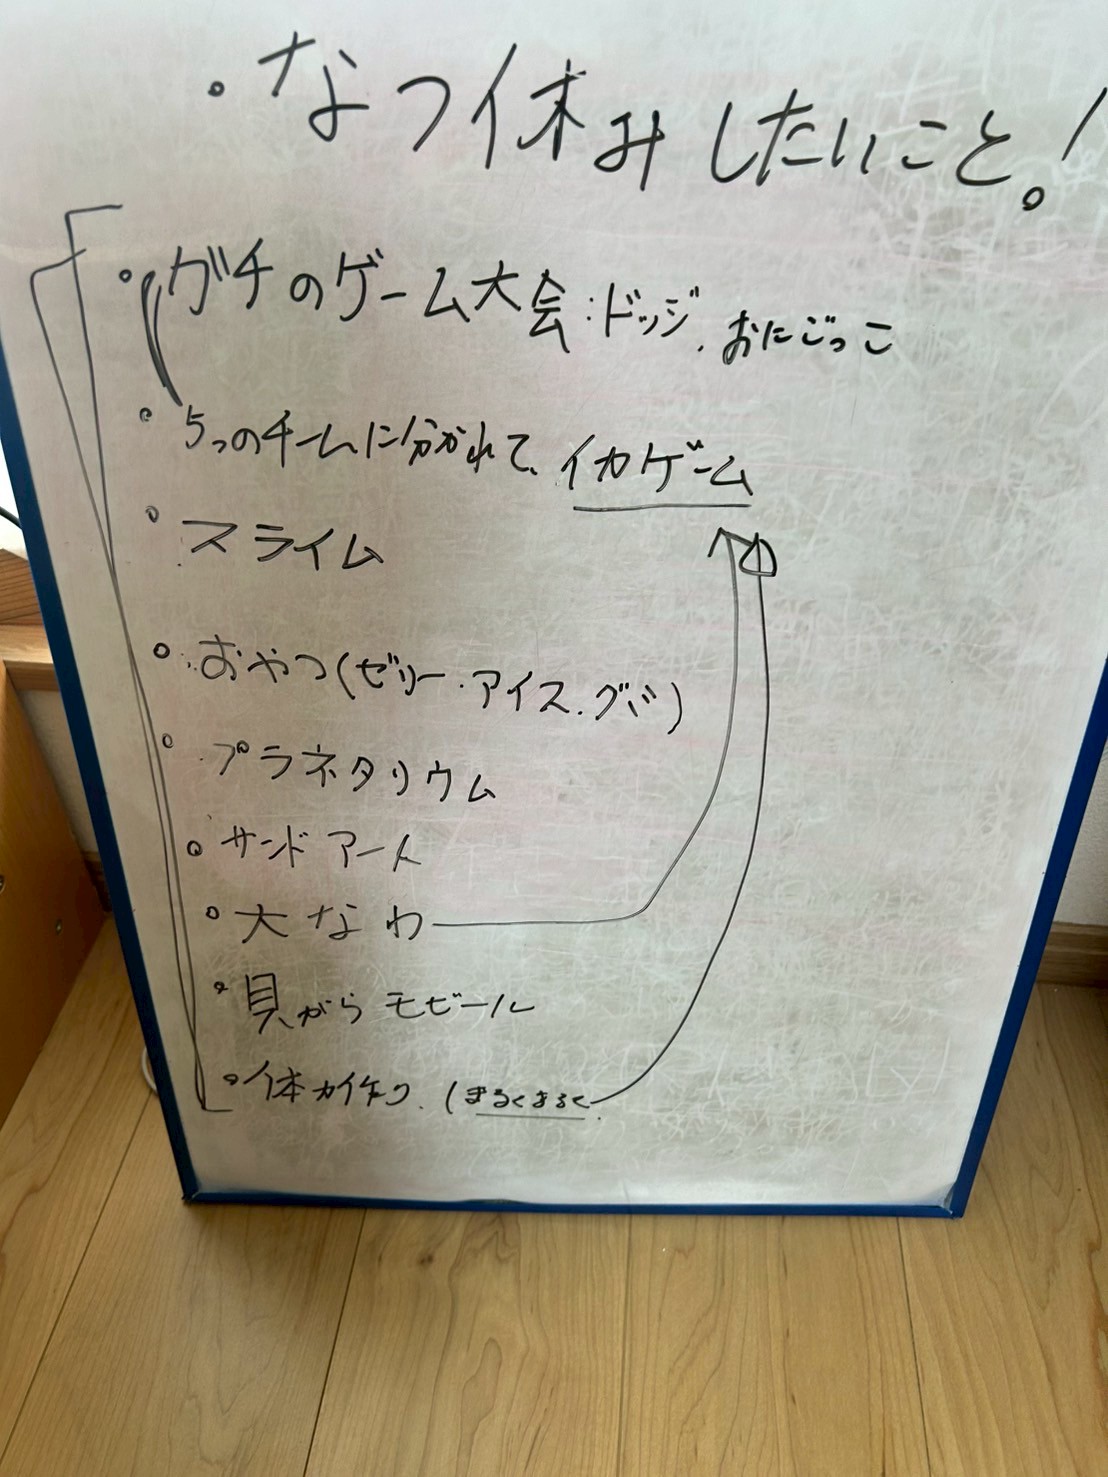 ・なつ休みしたいこと。!
・ガチのゲーム大会:ドッジ、おにごっこ
・5つのチームに分かれて、イカゲーム
・スライム
・おやつ(ゼリー・アイス・グミ)
・プラネタリウム
・サンドアート
・大なわ
・貝がらモビール
・体カイチク.(まるくまるく